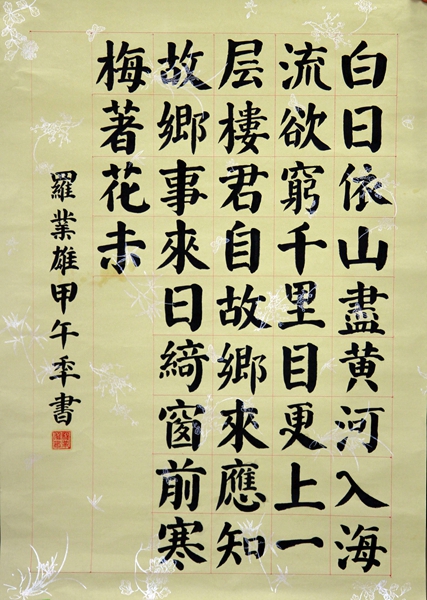 白日依山盡黄河入海
流欲窮千里目更上一
层樓君自故鄉來應知
故鄉事來日綺窗前寒
梅著花未
羅業雄甲午秊書